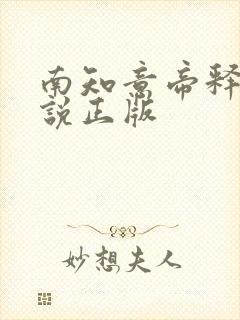 南知意帝释
说正版
妙想夫人